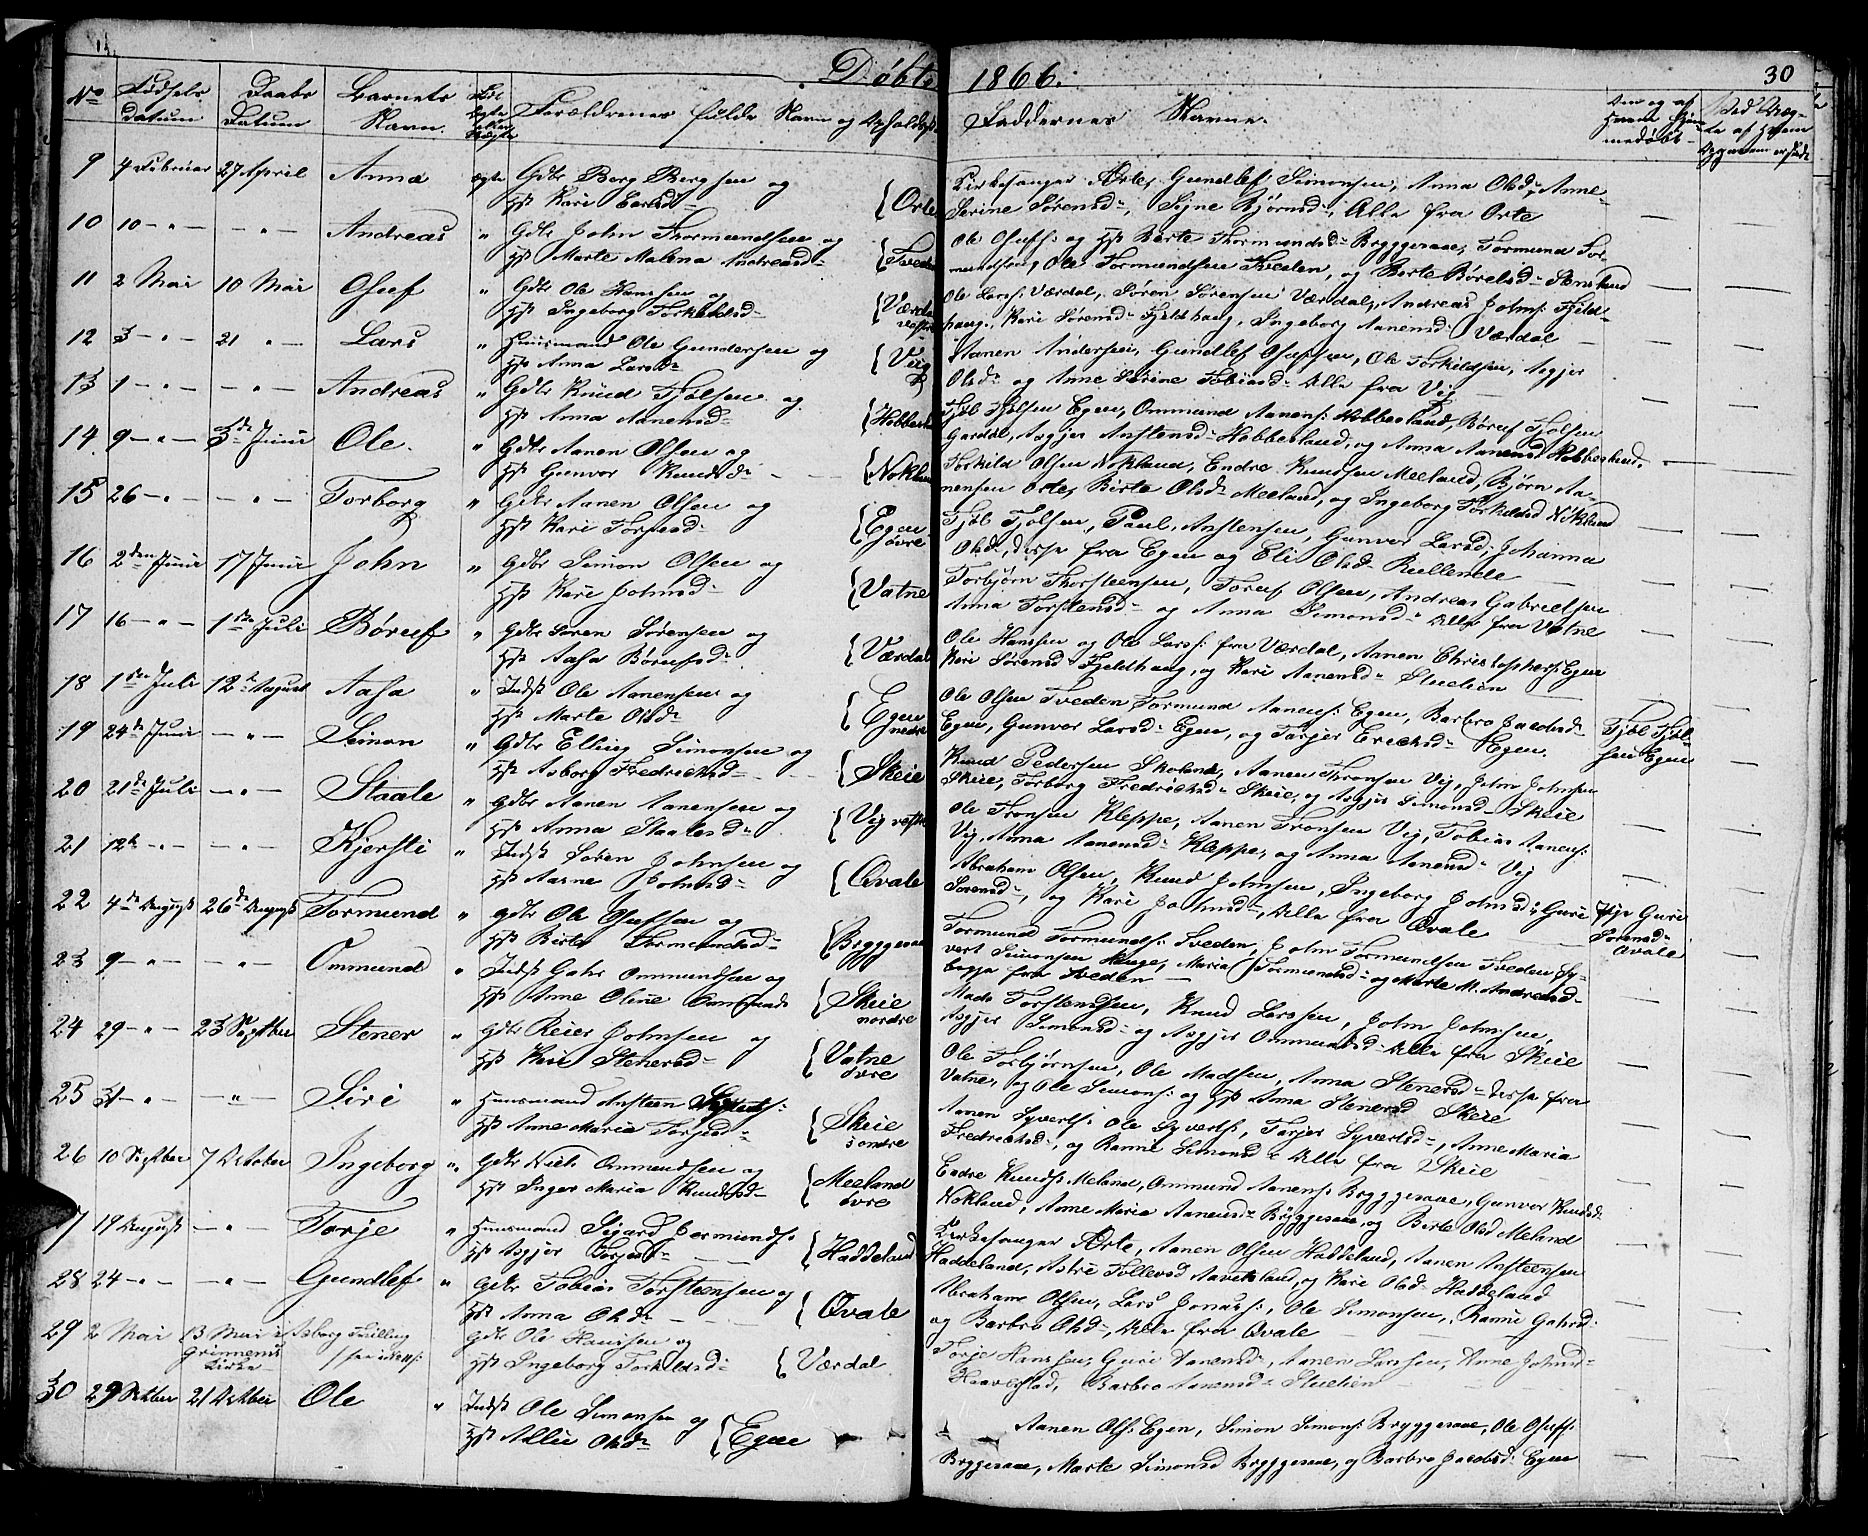 Døbte 1866. 30
No Fødsels Datum Daabs Datum Barnets Navn. Forældrenes fulde Navn og Opholdsst Faddernes Navne.
9 4 Februar 27 April Anna ægte Gdbr Berg Bergsen og
Hst Kari Larsd {Orte
Kirkesanger Ørte, Gundlef Simonsen, Anna Olsdr, Anne
Serine Sørensdr, Signe Bjørnsdr, Alle fra Orte
10 10 - " - - " - Andreas " Gdbr John Thormundsen og
Hst Marte Malena Andreasdr {Tveden
Ole Osufs: og Hst Berte Thormundsdr Bryggesaae, Tormund Tor-
mundsen, Ole Tormundsen Tveden, og Berte Børelsdr Stensland
11 2 Mai 10 Mai Osuf " Gdbr Ole Hansen og
Hst Ingeborg Torkildsdr {Værdal
Ole Larss: Værdal, Søren Sørensen Værdal, Andreas Johns: Fjeld-
haug, Kari Sørensdr Fjeldhaug, Ingeborg Aanensdr Værdal
12 3 - " - 21 " - Lars " Huusmand Ole Gundersen og
Hst Anna Larsdr {Veig
Aanen Andersen, Gundlef Osufsen, Ole Torkildsen, Asgjer
Olsdr og Anne Serine Tobiasdr Alle fra Vig
13 1 - " - - " - Andreas " Gdbr Knud Fjølsen og
Hst Anna Aanensdr {Hobbesland
Fjøl Fjølsen Egen, Ommund Aanens: Hobbesland, Børuf Fjølsen
Gardal, Asgjer Anstensdr Hobbesland, og Anna Aanensd Hobbesland.
14 9 - " - 3de Juni Ole. " Gdbr Aanen Olsen og
Hst Gunvor Knudsdr {Nokland
Torkild Olsen Nokland, Endre Knudsen Meeland, Bjørn Aa-
nensen Orte, Birte Olsdr Meeland, og Ingeborg Torkildsd Nokland
15 26 - " - - " - Torborg " Gdbr Aanen Olsen og
Hst Kari Torjusd {Egen øvre
Fjøl Fjølsen, Paul Anstensen, Gunvor Larsd, Johanna
Olsdr, disse fra Egen og Eli Olsdr
16 2den Juni 17 Juni John " Gdbr Simon Olsen og
Hst Kari Johnsd {Vatne
Torbjørn Thorsteensen, Toruf Olsen, Andreas Gabrielsen
Anna Torstensdr og Anna Simonsdr Alle fra Vatne
17 16 - " - 1ste Juli Børuf " Gdbr Søren Sørensen og
Hst Aasa Børufsdr {Værdal
Ole Hansen og Ole Larss: fra Værdal, Aanen Christophers: Egen
Kari Sørensd Fjeldhaug, og Kari Aanensdr Stuelien
18 1ste Juli 12te August Aasa " Indst Ole Aanensen og
Hst Marte Olsdr {Egen nedre
Ole Olsen Tveden Tormund Aanens: Egen, Barbro Jacobsdr
Egen, Gunvor Larsdr Egen, og Tarjer Erichsdr Egen. Fjøl Fjøl-
sen Egen
19 24de Juni - " - Simon " Gdbr Elling Simonsen og
Hst Asborg Fredrichsd {Skeie
Knud Pedersen Skoland, Aanen Thronsen Vig, John Johnsen
Skeie, Torborg Fredrichsdr Skeie, og Asgjer Simonsd Skeie
20 21de Juli - " - Staale " Gdbr Aanen Aanensen og
Hst Anna Staalesdr {Vig vestre
Ole Tronsen Kleppe, Aanen Tronsen Vig, Tobias Aanens:
Vig, Anna Aanensdr Kleppe, og Anna Aanensdr Vig
21 12te - " - - " - Kjersti " Indst Søren Johnsen og
Hst Aasne Johnsdr {Qvale
Abraham Olsen, Knud Johnsen, Ingeborg Johnsdr Guri
Sørensdr, og Kari Johnsdr, Alle fra Qvale Pige Guri
Sørensdr
Qvale
22 4de August 26de August Tormund " Gdbr Ole Osufsen og
Hst Birte Tormundsd {Bryggesaae
Tormund Tormunds: Tveden, John Tormundsen Tveden Sy-
vert Simonsen Hauge, Maria Tormundsdr og Marte M. Andreasd
begge fra Tveden
23 9 - " - - " - Ommund " Indst Gahr Ommundsen og
Hst Anne Oline {Skeie nordre
Mads Torstensen, Knud Larssen, John Johnsen,
Asgjer Simonsdr og Asgjer Ommundsdr Alle fra Skeie
24 29 - " - 23 Septbr Stener " Gdbr Reier Johnsen og
Hst Kari Stenersdr {Vatne øvre
Ole Torbjørnsen, Ole Madsen, Anna Stenersdr disse fra
Vatne, og Ole Simons: og Hst Anna Stenersd Skeie
25 31 - " - - " - Siri " Huusmand Ansteen Syverts:
Hst Anne Maria Torjusdr {Skeie søndre
Aanen Syverts: Ole Syverts, Tarjer Syvertsdr, Anne Maria
Fredrichsd, og Ranni Simonsdr Alle fra Skeie
26 10 Septbr 7 October Ingeborg " Gdbr Niels Ommundsen og
Hst Inger Maria Knudsdr {Meeland øvre
Endre Knuds: Meland, Ommund Aanens: Bryggesaae, Gunvor Knudsdr
Nokland, Anne Maria Aanensdr Bryggesaae, og Birte Olsd Meland
27 19 August - " - Torje " Huusmand Sigurd Germunds:
Hst Asgjer Torjusdr {Haddeland
Kirkesanger Ørte, Aanen Olsen Haddeland, Aanen Ansteensen
Haddeland, Astri Tollevsd, og Kari Olsd Haddeland
28 24 - " - - " - Gundlef " Gdbr Tobias Torsteensen og
Hst Anna Olsdr {Qvale
Abraham Olsen, Lars Jonass:, Ole Simonsen, Ranni Gahrsd:
og Barbro Olsdr, Alle fra Qvale
29 2 Mai 13 Mai i Grinnems Kirke Asborg Gdbr Ole Hansen og
Hst Ingeborg Torkildsdr {Værdal
Torje Hanssen, Guri Aanensdr, Aanen Larssen, Anne Johnsdr
Haavestad, Barbro Aanensdr Stuelien
30 29 Septbr 21 October Ole " Indst Ole Simonsen og
Hst Allie Olsdr {Egen
Aanen Ols: Egen, Simon Simons: Bryggesaae, Ole Osufs:
Bryggesaae, Marte Simonsd Bryggesaae, og Barbro Jacobsd: Egen